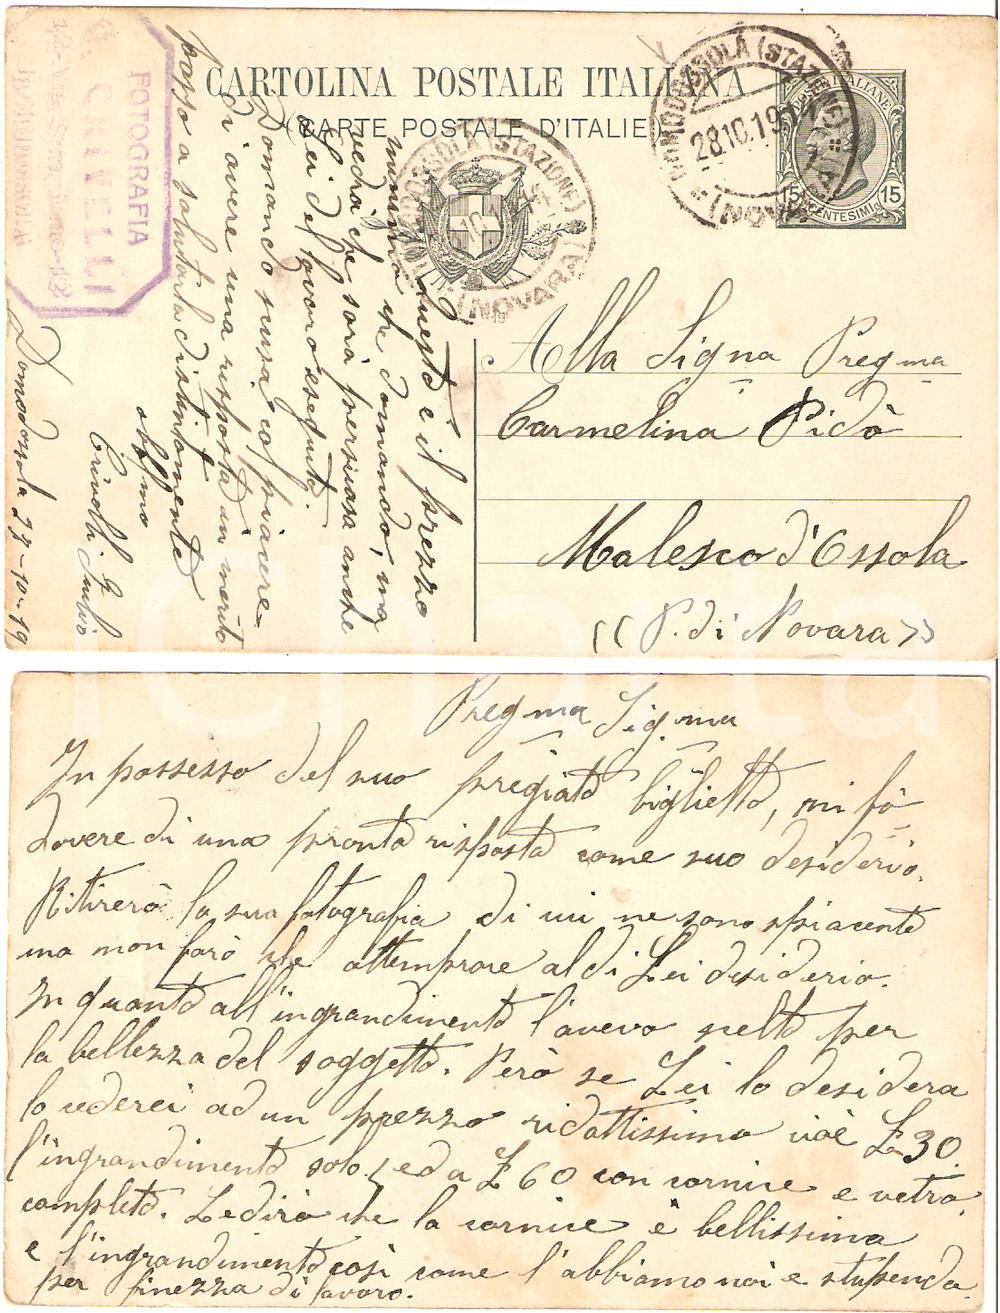 CARTOLINA POSTALE ITALIANA
(CARTE POSTALE D'ITALIE
DOMODOSSOLA (STAZIONE)
(NOVARA)
28.10.19
POSTE ITALIANE
15 CENTESIMI 15
DOMODOSSOLA (STAZIONE)
(NOVARA)
19
FOTOGRAFIA
G. CRIVELLI
12 - Via Sempione - 12
DOMODOSSOLA
Alla Signa Pregma
Carmelina Pidò
Malesco d'Ossola
((P. di Novara))
Questo è il prezzo
minimo che domando, ma
vedrà che sarà persuasa anche
Lei del lavoro eseguito.
Domando scusa, ò piacere
di avere una risposta in merito
passo a salutarla distintamente
obblmo
Crivelli G.
Domodossola 27-10-19
Pregma Sigma
In possesso del suo pregiato biglietto, mi fò
dovere di una pronta risposta come suo desiderio.
Ritirerò la sua fotografia di cui ne sono spiacente
ma non farò che ottemprare al di Lei desiderio.
In quanto all'ingrandimento l'avevo scelto per
la bellezza del soggetto. Però se Lei lo desidera
lo cederei ad un prezzo ridottissimo cioè £ 30
l'ingrandimento solo, ed a £ 60 con cornice e vetro,
completo. Le dirò che la cornice è bellissima
e l'ingrandimento così come l'abbiamo noi è stupendo
per finezza di lavoro.